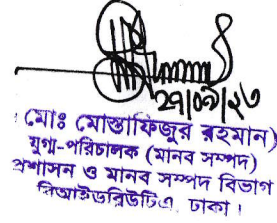 ২৭/০৯/২৩
(মোঃ মোস্তাফিজুর রহমান)
যুগ্ম-পরিচালক (মানব সম্পদ)
প্রশাসন ও মানব সম্পদ বিভাগ
বিআইডব্লিউটিএ, ঢাকা।